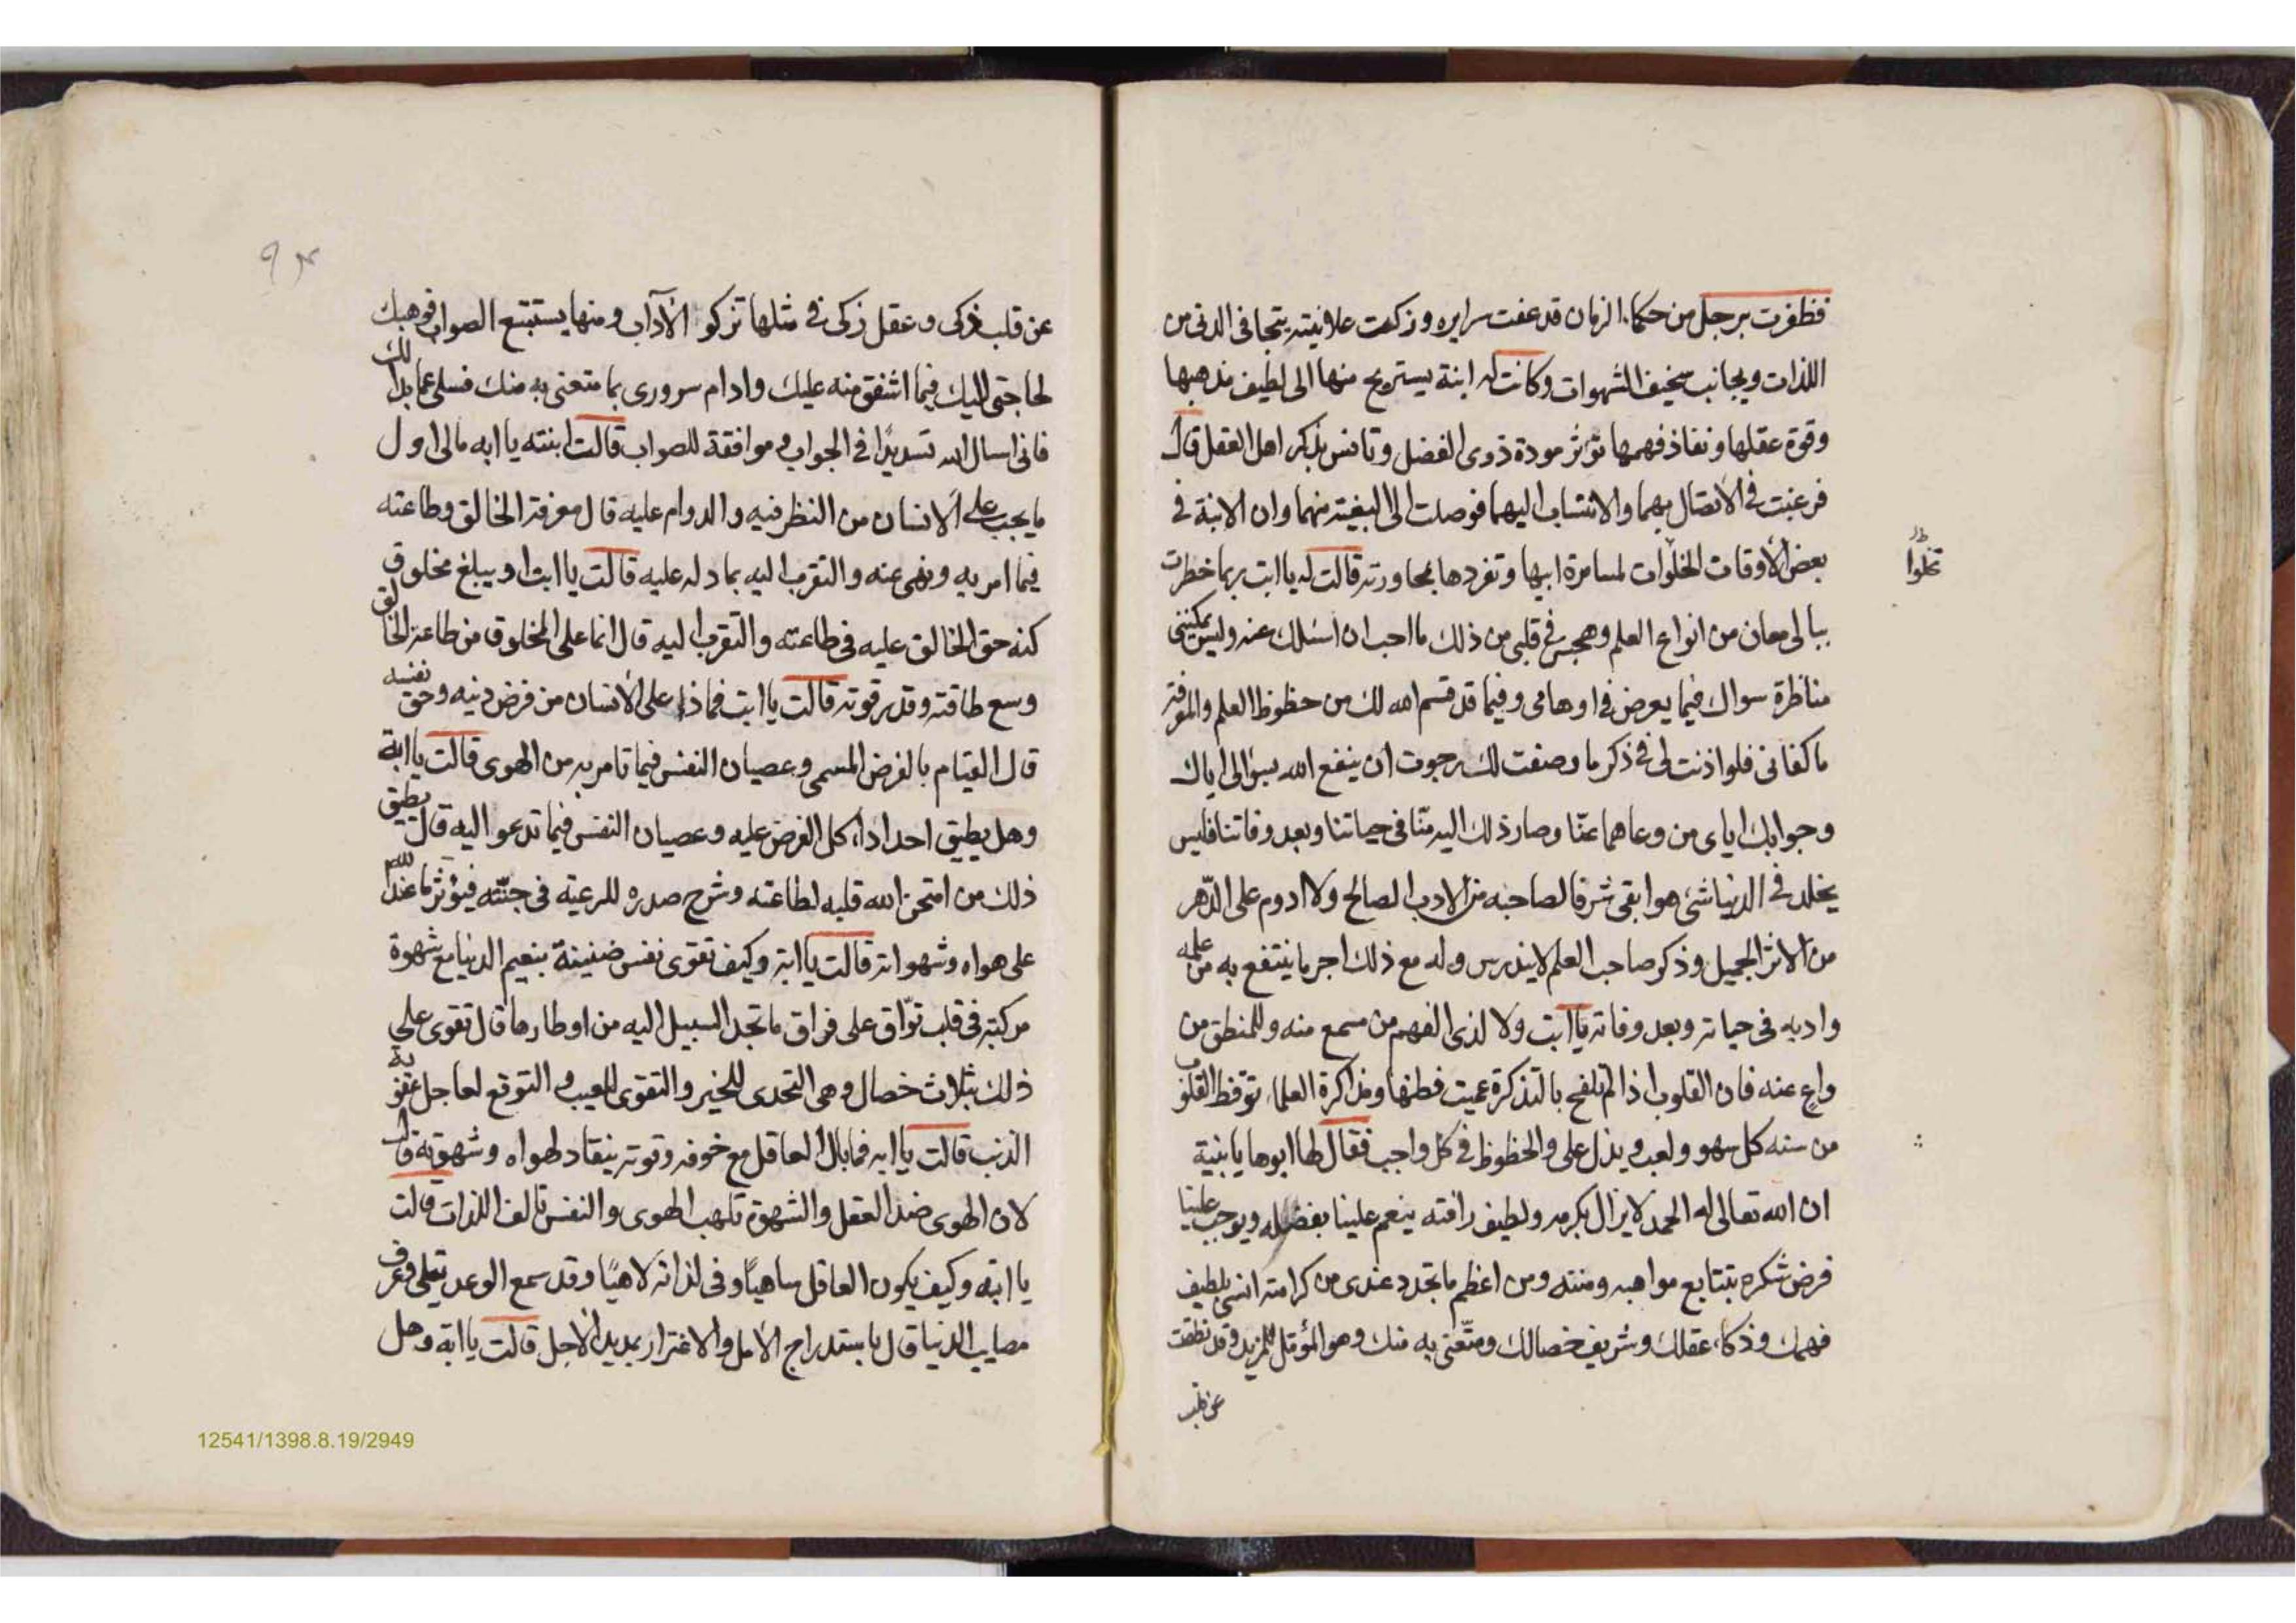 فظفرت برجل من حكماء الزمان قد عفت سرايره وزكت علانيته يتجافى الدنى من
اللذات ويجانب سخيف الشهوات وكانت له ابنة يستريح منها الى لطيف مذهبها
وقوة عقلها ونفاذ فهمها تؤثر مودة ذوى الفضل وتانس بذكر اهل العقل قال
فرغبت فى الاتصال بهما والانتساب اليهما فوصلت الى البغية منهما وان الابنة فى
بعض الأوقات الخلوات لمسامرة ابيها وتفردها بمحاورته قالت له يا ابت ربما خطرت
ببالى معان من انواع العلم وهجس فى قلبى من ذلك ما احب ان اسئلك عنه وليس يمكننى
مناظرة سواك فيما يعرض فى اوهامى وفيما قد قسم الله لك من حظوظ العلم والمعرفة
ما كفانى فلو اذنت لى فى ذكر ما وصفت لك رجوت ان ينفع الله بسؤالى اياك
وجوابك اياى من وعاهما عنّا وصار ذلك اليه منّا فى حياتنا وبعد وفاتنا فليس
يخلد فى الدنيا شئ هو ابقى شرفا لصاحبه من الادب الصالح ولا ادوم على الدّهر
من الاثر الجميل وذكر صاحب العلم لا يندرس وله مع ذلك اجر ما ينتفع به من علمه
وادبه فى حياته وبعد وفاته يا ابت ولا لذى الفهم من مسمع منه وللمنطق من
واع عنه فان القلوب اذا لم تلقح بالتذكرة عميت فطنها ومذاكرة العلماء توقظ القلوب
من سنه كل سهو ولعب ويدل على والحظوظ فى كل واجب فقال لها ابوها يا بنية
ان الله تعالى له الحمد لا يزال بكرمه ولطيف رافته ينعم علينا بفضله ويوجب علينا
فرض شكره بتتابع مواهبه ومننه ومن اعظم ما تجدد عندى من كرامته انسى بلطيف
فهمك وذكاء عقلك وشريف خصالك ومتّعنى به منك وهو المؤمّل للمزيد وقد نطقت
عن قلب
عن قلب ذكى وعقل زكى فى مثلها تزكو الآداب ومنها يستتبع الصواب فوهبك
لحاجتى اليك فيما اشفق منه عليك وادام سرورى بما متعنى به منك فسلى عما بدا لك
فانى اسال الله تسديدًا فى الجواب وموافقة للصواب قالت ابنته يا ابه ما لى اول
ما يجب على الانسان من النظر فيه والدوام عليه قال معرفة الخالق وطاعته
فيما امر به ونهى عنه والتقرب اليه بما دله عليه قالت يا ابت او يبلغ مخلوق
كنه حق الخالق عليه فى طاعته والتقرب اليه قال انما على المخلوق من طاعة الخالق
وسع طاقته وقدر قوته قالت يا ابت فما ذا على الانسان من فرض دينه وحق نفسه
قال القيام بالفرض المسمى وعصيان النفس فيما تامر به من الهوى قالت يا ابة
وهل يطيق احد اداء كل الفرض عليه وعصيان النفس فيما تدعو اليه قال يطيق
ذلك من امتحن الله قلبه لطاعته وشرح صدره للرعية فى جنّته فيؤثر ما عند الله
على هواه وشهواته قالت يا ابة وكيف تقوى نفس ضنينة بنعيم الدنيا مع شهوة
مركبة فى قلب توّاق على فراق ما تجد السبيل اليه من اوطارها قال تقوى على
ذلك بثلاث خصال وهى التحدى للخير والتقوى للعيب والتوقع لعاجل عقوبة
الذنب قالت يا ابه فما بال العاقل مع خوفه وقوته ينقاد لهواه وشهوته قال
لان الهوى ضد العقل والشهوة تلهب الهوى والنفس تالف اللذات قالت
يا ابته وكيف يكون العاقل ساهيًا وفى لذاته لاهيًا وقد سمع الوعد يتلى وعرف
مصايب الدنيا قال باستدراج الأمل والاغترار بمديد الأجل قالت يا ابة وهل
12541/1398.8.19/2949